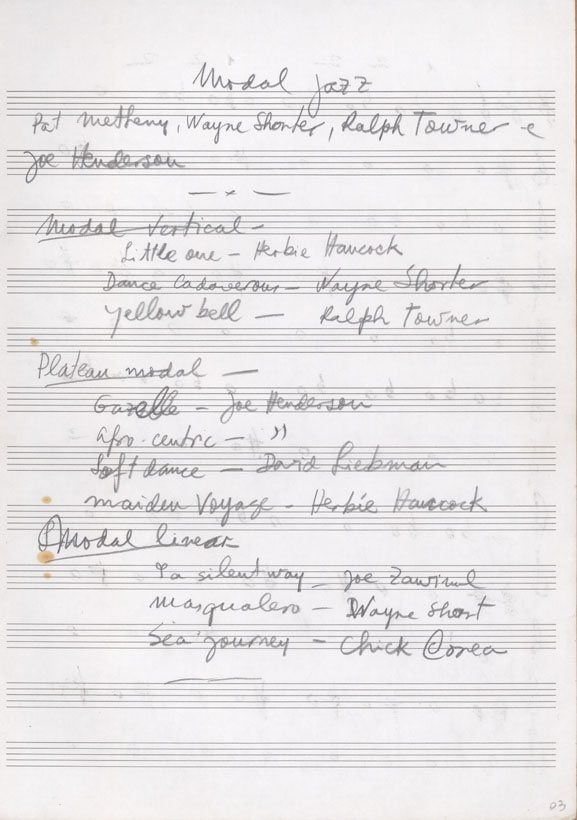 Modal jazz
Pat Metheny, Wayne Shorter, Ralph Towner e
Joe Henderson
— x —
Modal vertical –
Little one – Herbie Hancock
Dance Cadaverous – Wayne Shorter
Yellow bell — Ralph Towner
Plateau modal —
Gazelle – Joe Henderson
Afro-centric – "
Soft dance – David Liebman
maiden Voyage – Herbie Hancock
Modal linear
silent way – Joe Zawinul
Masqualero – Wayne Short
Sea journey – Chick Corea
03